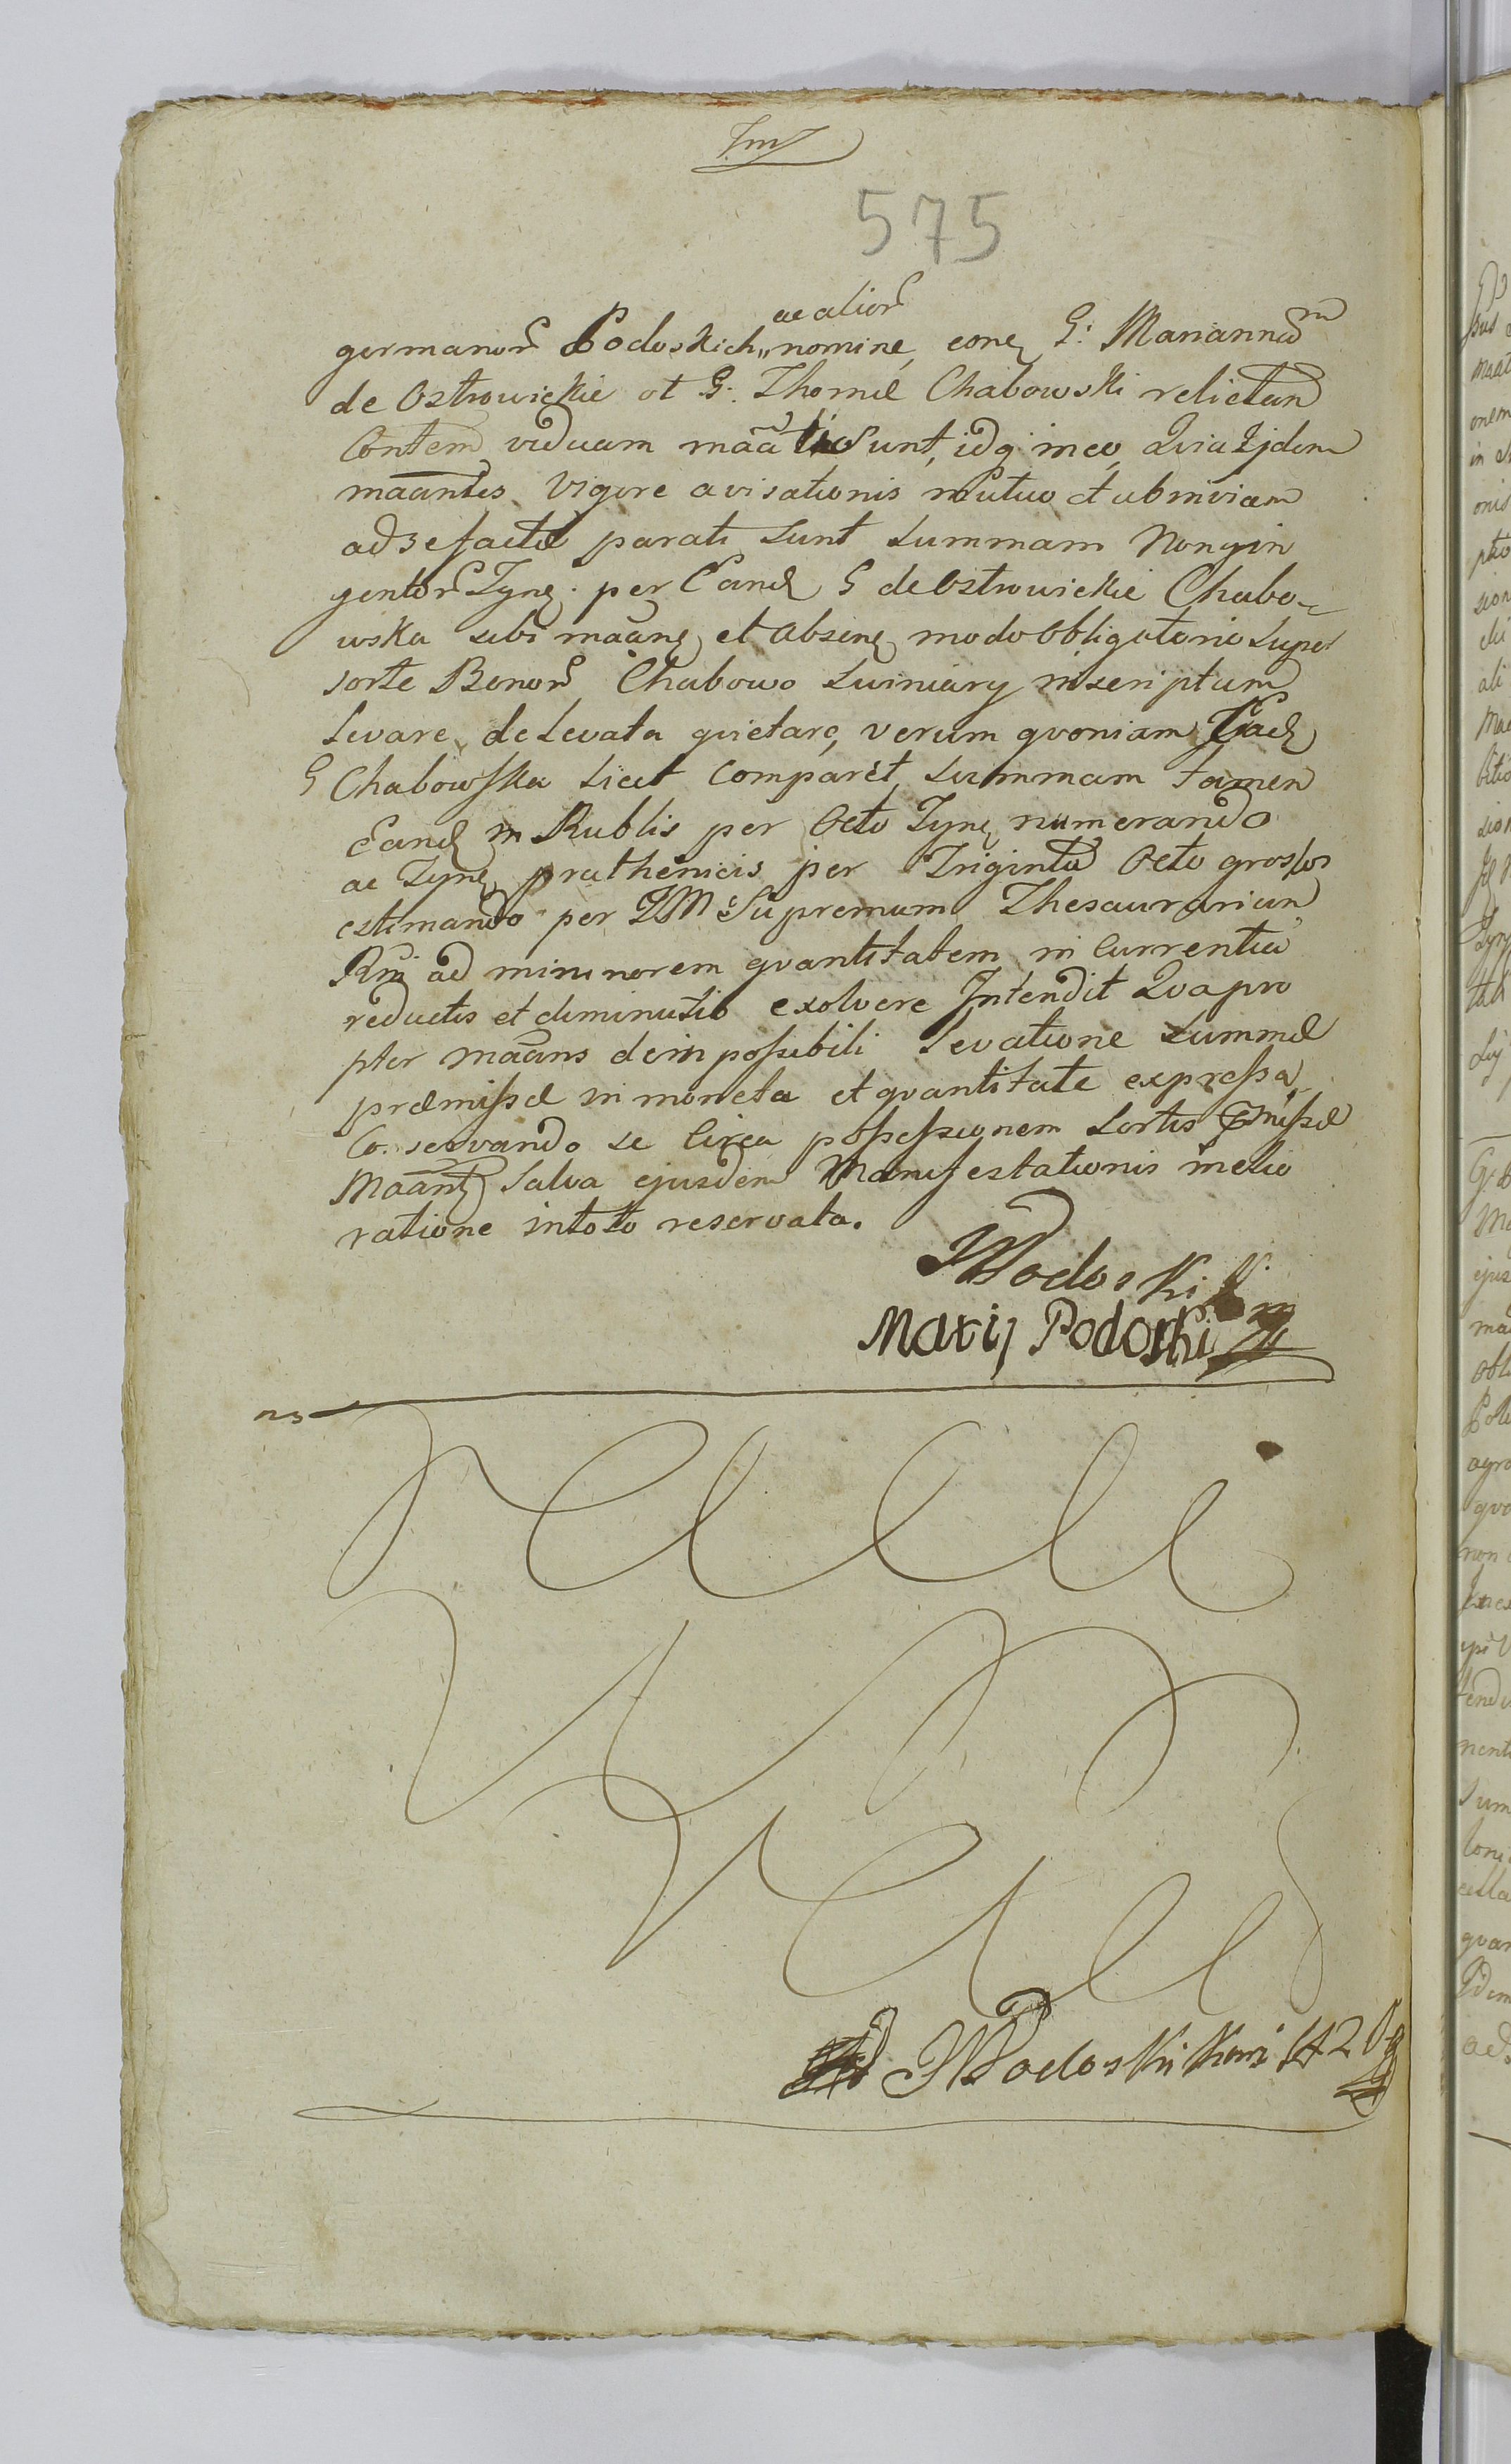 575
ac alior
germanor Podoskich nomine, conq G: Mariannam
de Ostrowickie ol G. Thomæ Chabowski relictam
Contem viduam mãati Sunt, idq in eo, Qvia Ijdem
maantes Vigore avisationis mutuo et ubiniviam
ad se factæ parati sunt summam Nongin
gentor Tynq. per Eand G de Ostrowickie Chabo-
wska sibi maanq et absenq modo obligatorio super
sorte Bonor Chabowo Swiniary inscriptam
levare, de levata qvietare, verum qvoniam Ead
G Chabowska licet Comparet, summam tamen
Eand in Rublis per Octo Tynq numerando
ac Tynq pruthenicis per Triginta Octo grossos
estimando per IM Supremum Thesaurarium
Rni ad mininorem qvantitatem in Currentia
reductis et diminutis exolvere Intendit Qvapro
pter maans de impossibili levatione summæ
præmissæ in moneta et qvantitate expressa,
Co servando se Circa possessionem sortis pmissæ
Maant Salva ejusdem Manifestationis melio
ratione in toto reservata.
JPodoski
Maxij Podoski
JPodoski